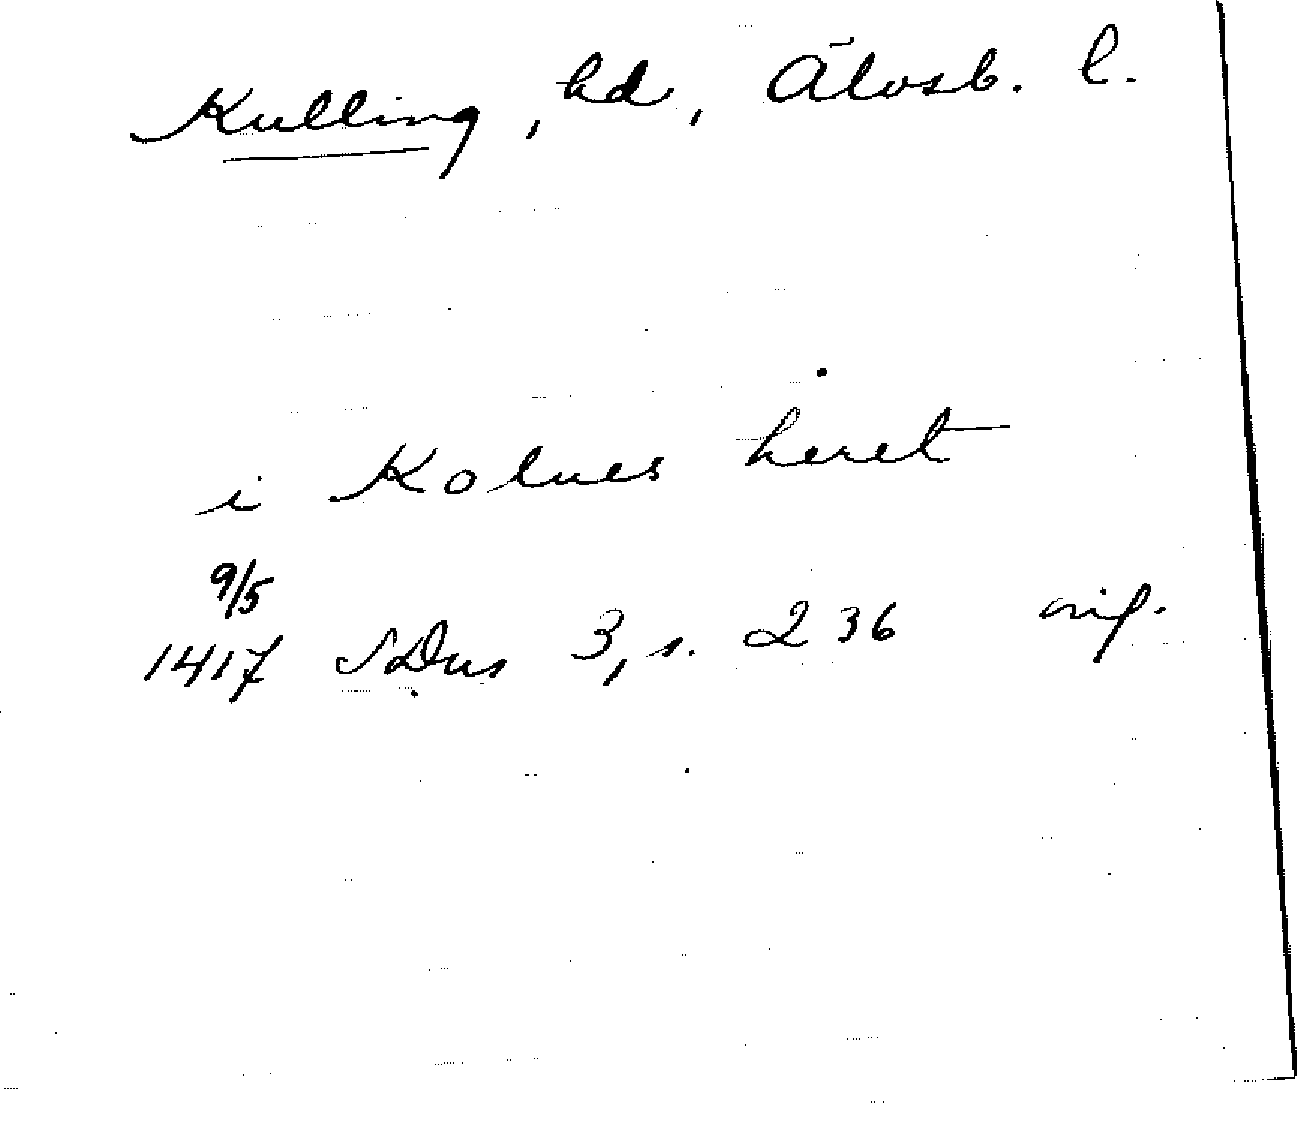 Kulling, hd, Älvsb. l.
i Kolnes heret
9/5
1417 SDns 3, s. 236 orig.